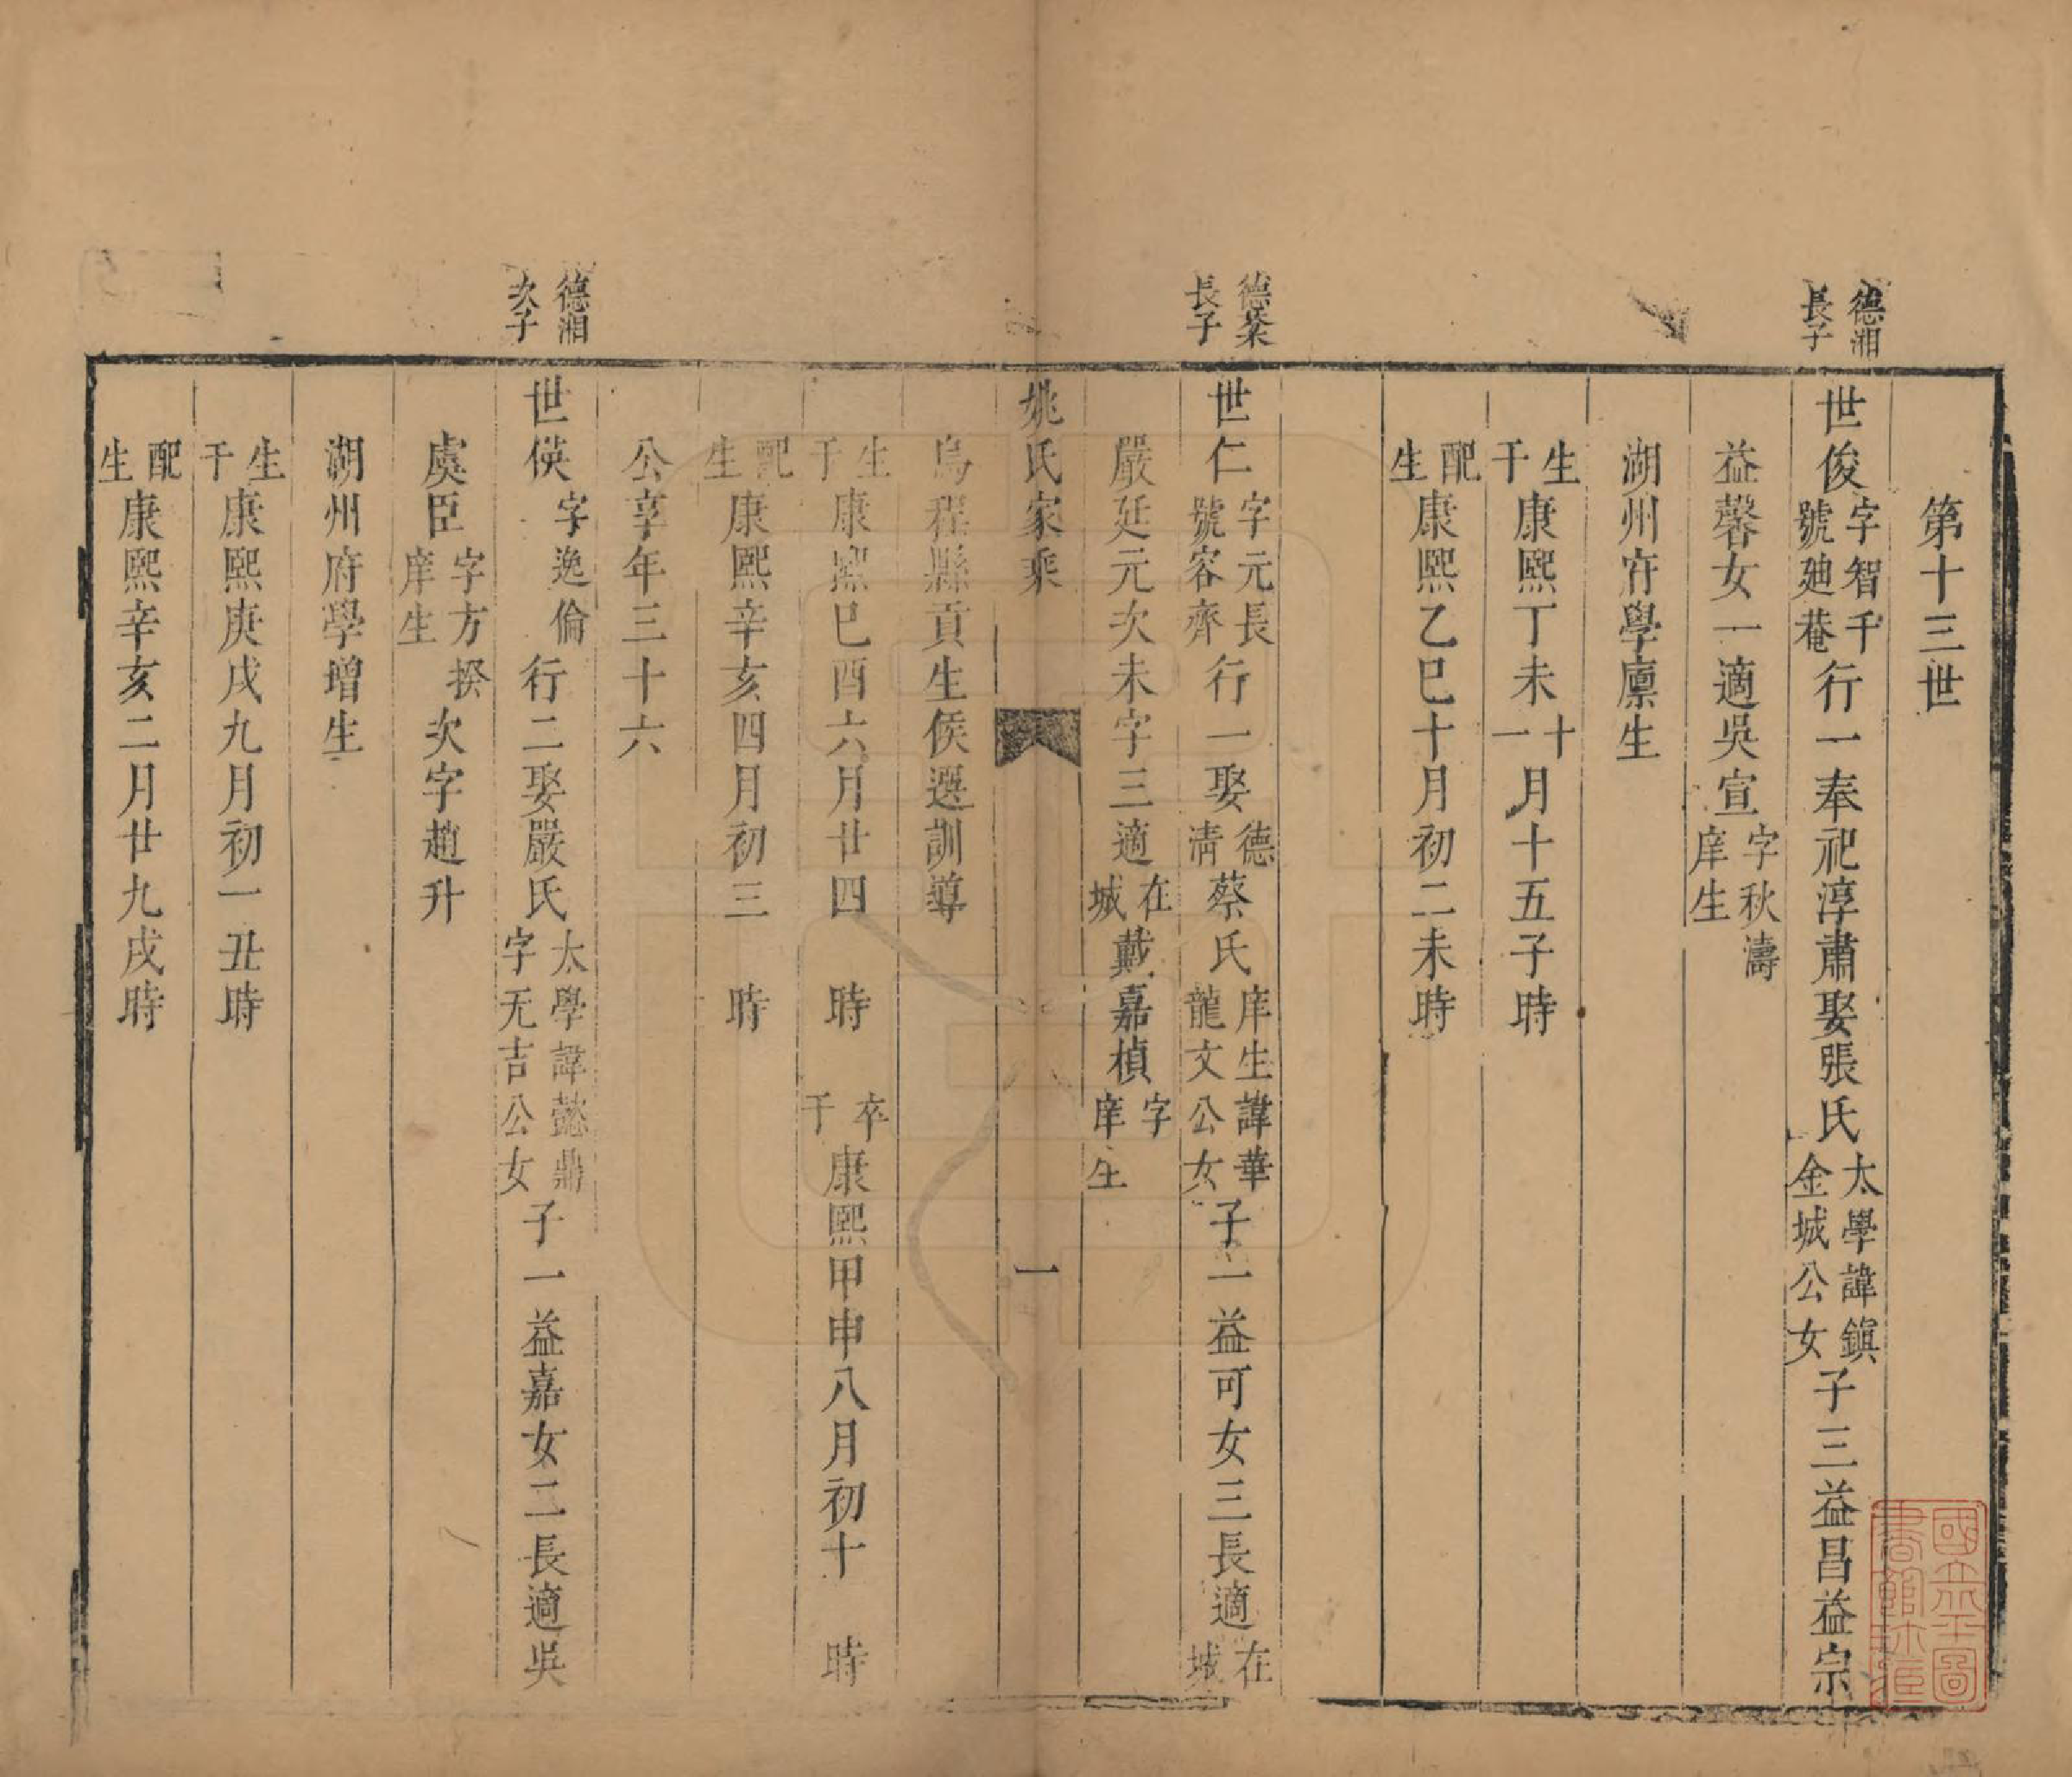 第十三世
德湘長子
世俊字智千號廸菴行一奉祀淳肅娶張氏太學諱鎮金城公女子三益昌益宗
益馨女一適吳宣字秋濤庠生
湖州府學廪生
生于康熙丁未十一月十五子時
配生康熙乙巳十月初二未時
德棻長子
世仁字元長號容齊行一娶德清蔡氏庠生諱華龍文公女子一益可女三長適在城
嚴延元次未字三適在城戴嘉楨字庠生
姚氏家乘 一
烏程縣貢生候選訓導
生于康熙己酉六月廿四 時 卒于康熙甲申八月初十 時
配生康熙辛亥四月初三 時
公享年三十六
德湘次子
世僙字逸倫行二娶嚴氏太學諱懿鼎字无吉公女子一益嘉女二長適吳
虞臣字方揆庠生次字趙升
湖州府學增生
生于康熙庚戌九月初一丑時
配生康熙辛亥二月廿九戌時
國立北平圖書館珍藏